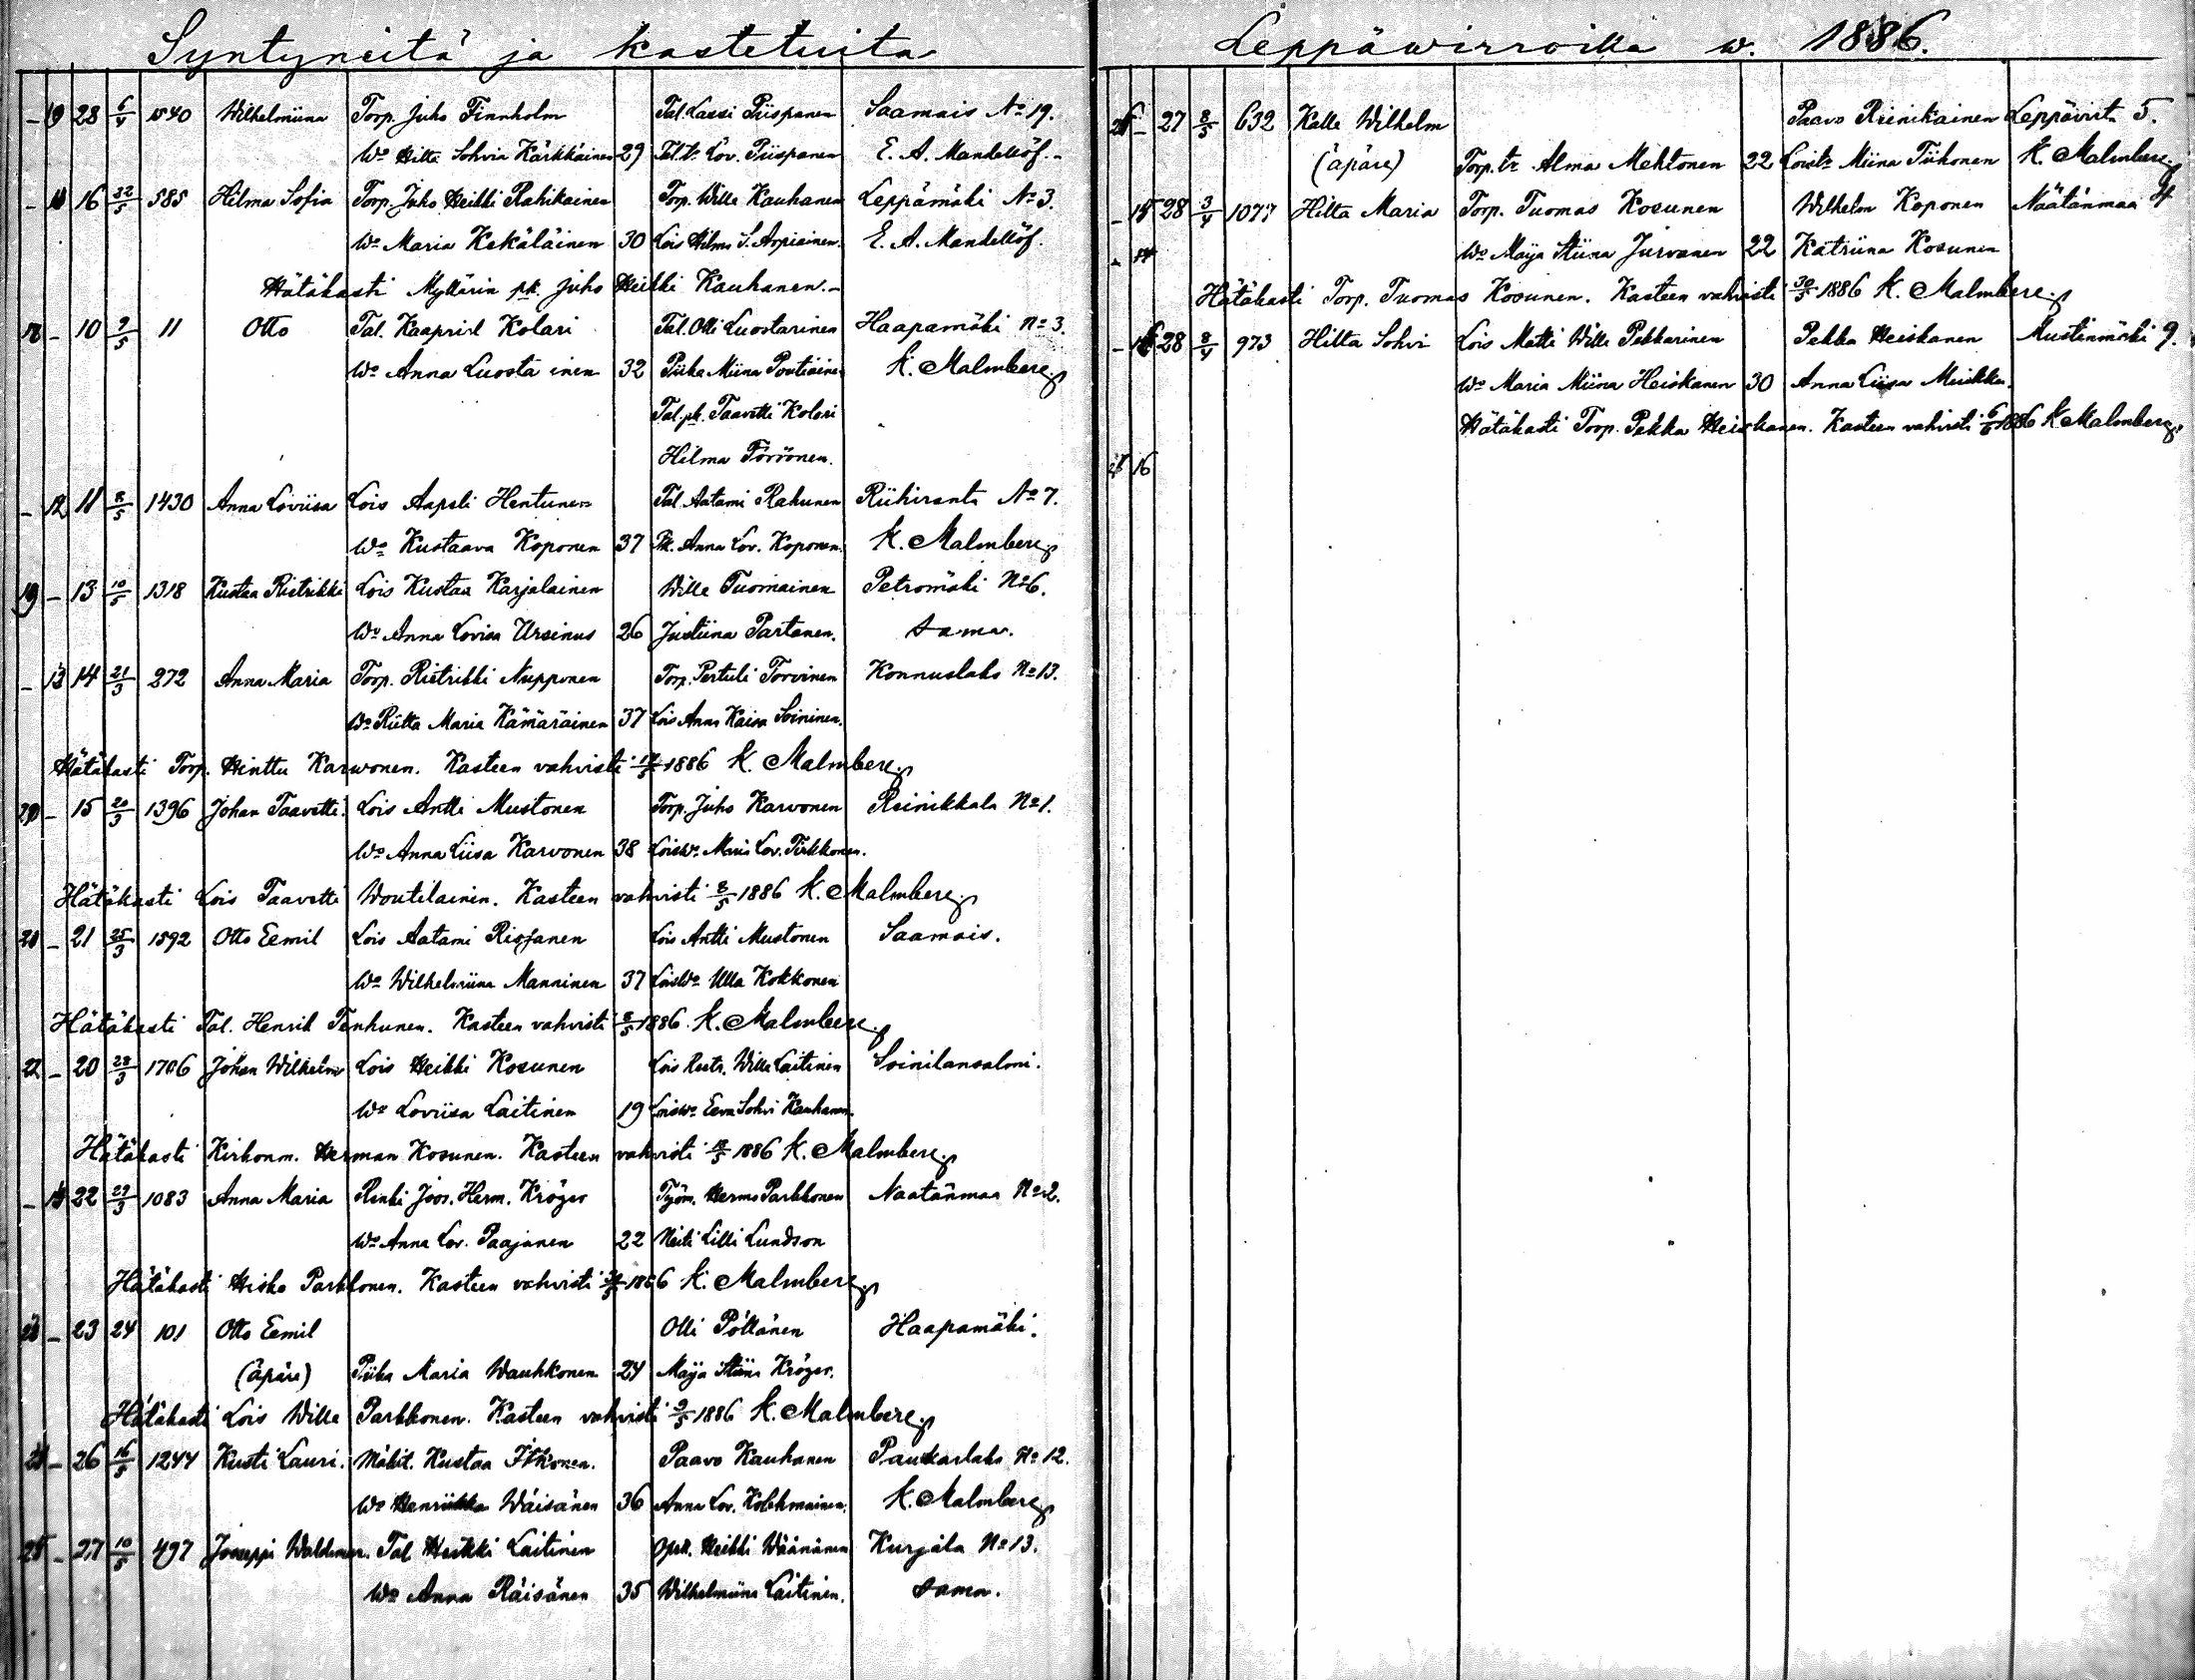 Syntyneitä ja kastetuita
- 28 6/4 1540 Wilhelmiina Torp. Juho Finnholm Tal. Lassi Piispanen Saamais No 19.
Wo Hilta Sohvia Kärkkäinen 29 Tal. tr Lov. Piispanen E. A. Mandellöf.
- 16 22/5 585 Hilma Sofia Torp. Juho Heikki Rahikainen Torp. Wille Kauhanen Leppämäki No 3.
Wo Maria Kekäläinen 30 Lois Hilma S. Arpiainen. E. A. Mandellöf.
Hätäkasti Myllärin pk. Juho Heikki Kauhanen.
18 - 10 9/5 11 Otto Tal. Kaapriel Kolari Tal. Olli Luostarinen Haapamäki No 3.
Wo Anna Luosta inen 32 Piika Miina Poutiainen K. Malmberg
Tal. pk. Taavetti Kolari
Hilma Törönen.
- 12 11 8/5 1430 Anna Loviisa Lois Aapeli Hentunen Tal. Aatami Rahunen Riihiranta No 7.
Wo Kustaava Koponen 37 Pk. Anna Lov. Koponen. K. Malmberg
19 - 13 10/5 1318 Kustaa Ristrikki Lois Kustaa Karjalainen Wille Tuomainen Petromäki No 6.
Wo Anna Lovisa Ursinus 26 Justiina Partanen. sama.
- 13 14 21/3 272 Anna Maria Torp. Ristrikki Nupponen Torp. Pertuli Torvinen Konnuslaks No 13.
Wo Riitta Maria Kämäräinen 37 Lois Anna Kaisa Soininen.
Hätäkasti Torp. Hinttu Karwonen. Kasteen vahvisti 1886 K. Malmberg
20 - 15 20/3 1396 Johan Taavetti. Lois Antti Mustonen Torp. Juho Karvonen Reinikkala No 1.
Wo Anna Liisa Karvonen 38 Loisw. Maria Lov. Pirkkonen.
Hätäkasti Lois Taavetti Woutilainen. Kasteen vahvisti 8/5 1886 K. Malmberg
21 - 21 25/3 1592 Otto Eemil Lois Aatami Risjanen Lois Antti Mustonen Saamais.
Wo Wilhelmiina Manninen 37 Loiswo Ulla Kokkonen
Hätäkasti Tal. Henrik Tenhunen. Kasteen vahvisti 8/5 1886. K. Malmberg
22 - 20 28/3 1706 Johan Wilhelm Lois Heikki Kosunen Lois Wille Laitinen Soinilansalmi.
Wo Loviisa Laitinen 19 Loiswo Eeva Sohvi Kauhanen.
Hätäkasti Kirkonm. Herman Kosunen. Kasteen vahvisti 1886 K. Malmberg
- 22 29/3 1083 Anna Maria Renki Joos. Herm. Kröger Työm. Herma Parkkonen Naatänmaa No 2.
Wo Anna Lov. Paajanen 22 Neiti Lilli Lundson
Hätäkasti Hisko Parkkonen. Kasteen vahvisti 1886 K. Malmberg
23 - 23 24 101 Otto Eemil Olli Pöllänen Haapamäki.
(äpäre) Piika Maria Wauhkonen 24 Maija Stiina Kröger.
Hätäkasti Lois Wille Parkkonen. Kasteen vahvisti 9/5 1886 K. Malmberg
24 - 26 16/5 1244 Kusti Lauri. Mäkit. Kustaa Itkonen. Paavo Kauhanen Paukarlaks No 12.
Wo Henriikka Wäisänen 36 Anna Lov. Kolehmainen. K. Malmberg
25 - 27 10/5 497 Joseppi Waldemar. Tal Heikki Laitinen Heikki Wäänänen Kurjala No 13.
Wo Anna Räisänen 35 Wilhelmiina Laitinen. sama.
Leppäwirroilla w. 1886.
26 - 27 8/5 632 Kalle Wilhelm Paavo Reinikainen Leppävirta 5.
(äpäre) Torp. tr Alma Mehtonen 22 Loistr Miina Tiihonen K. Malmberg
- 15 28 3/4 1077 Hilta Maria Torp. Tuomas Kosunen Wilhelm Koponen Näätänmaa 4
- 14 Wo Maija Stiina Jurvanen 22 Katriina Kosunen
Hätäkasti Torp. Tuomas Kosunen. Kasteen vahvisti 30/5 1886 K. Malmberg
- 16 28 8/4 973 Hilta Sohvi Lois Matti Wille Pekkarinen Pekka Heiskanen Mustinmäki 9.
Wo Maria Miina Heiskanen 30 Anna Liisa Muikku.
Hätäkasti Torp. Pekka Heiskanen. Kasteen vahvisti 6/6 1886 K. Malmberg
26 16